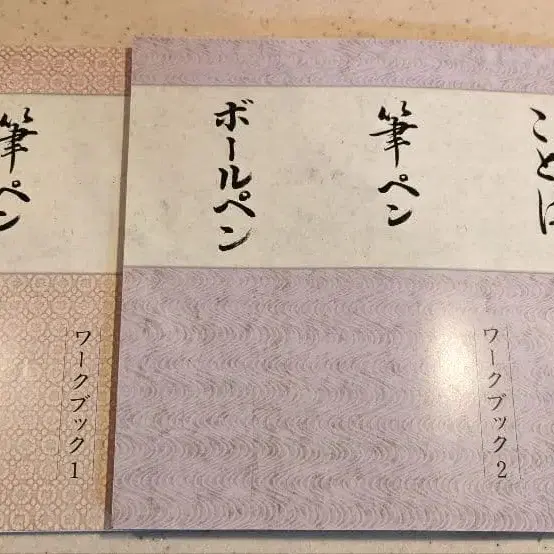 ことば
筆ペン
ボールペン
ワークブック2
筆ペン
ワークブック1